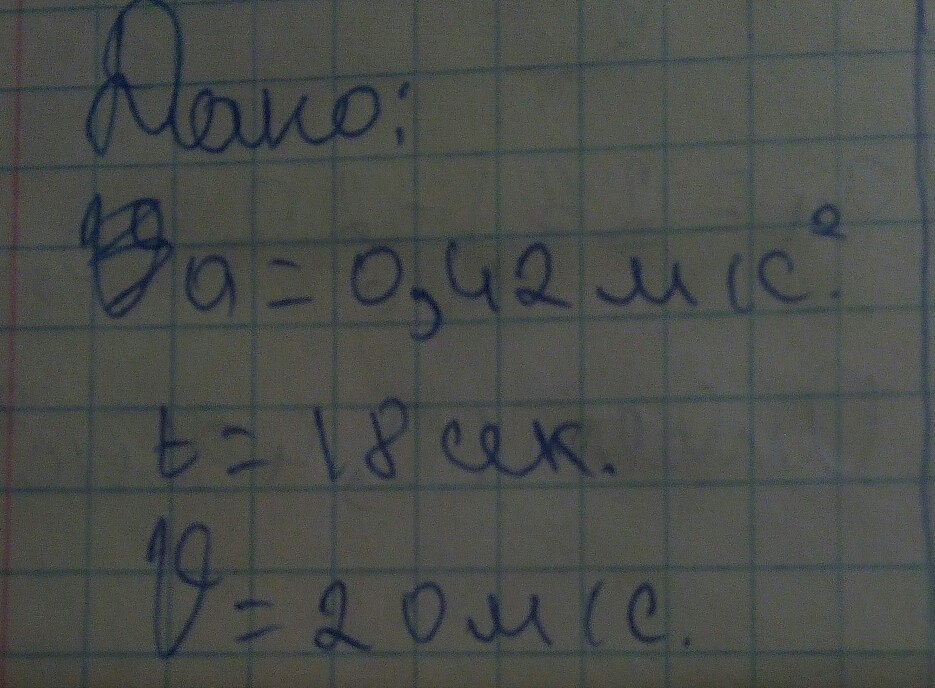 Дано:
a = 0,42 м/с².
t = 18 сек.
V = 20 м/с.